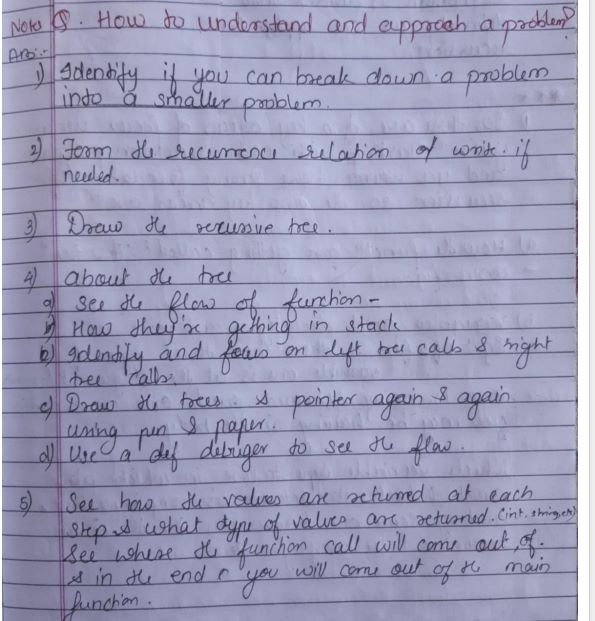 Note Q. How to understand and approach a problem?
Ans:-
1) Identify if you can break down a problem
into a smaller problem.
2) Form the recurrence relation of write if
needed.
3) Draw the recursive tree.
4) about the tree
a) see the flow of function -
b) How they're getting in stack
b) Identify and focus on left tree calls & right
tree calls.
c) Draw the trees & pointer again & again
using pen & paper.
d) Use a def debugger to see the flow.
5) See how the values are returned at each
step & what type of values are returned. (int, string, etc)
See where the function call will come out of.
& in the end you will come out of the main
function.